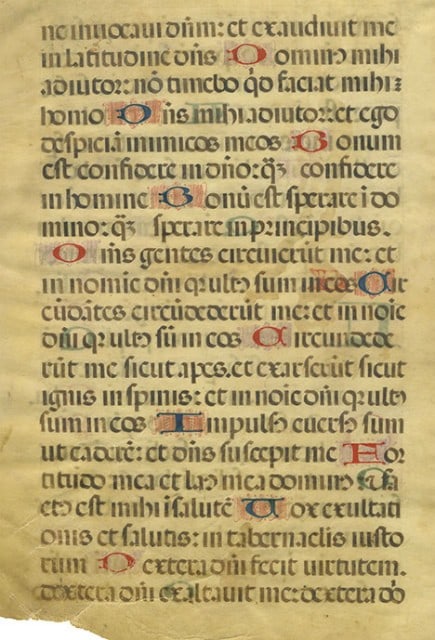 ne invocavi dñm: et exaudivit me
in latitudine dñs Dominꝰ mihi
adiutor: nõ timebo q̇d faciat mihi:
homo Dñs mihi adiutor: et ego
despiciã inimicos meos Bonum
est confidere in dño: qȝ confidere
in homine Bonũ est sperare ĩ do
mino: qȝ sperare in principibus.
Oms̃ gentes circuierũt me: et
in nomĩe dñi qr ultꝰ sum in eos Cir
cũdãtes circũdederũt me: et in noĩe
dñi qr ultꝰ sũ in eos Circundede
rũt me sicut apes. et exarserũt sicut
ignis in spinis: et in noĩe dñi qr ultꝰ
sum in eos Impulsꝰ eversꝰ sum
ut caderẽ: et dñs suscepit me For
titudo mea et laꝰ mea dominꝰ et fa
ctꝰ est mihi ĩ salutẽ Vox exultati
onis et salutis: in tabernaclis iusto
rum Dextera dñi fecit virtutem.
dextera dñi exaltavit me: dextera dõ